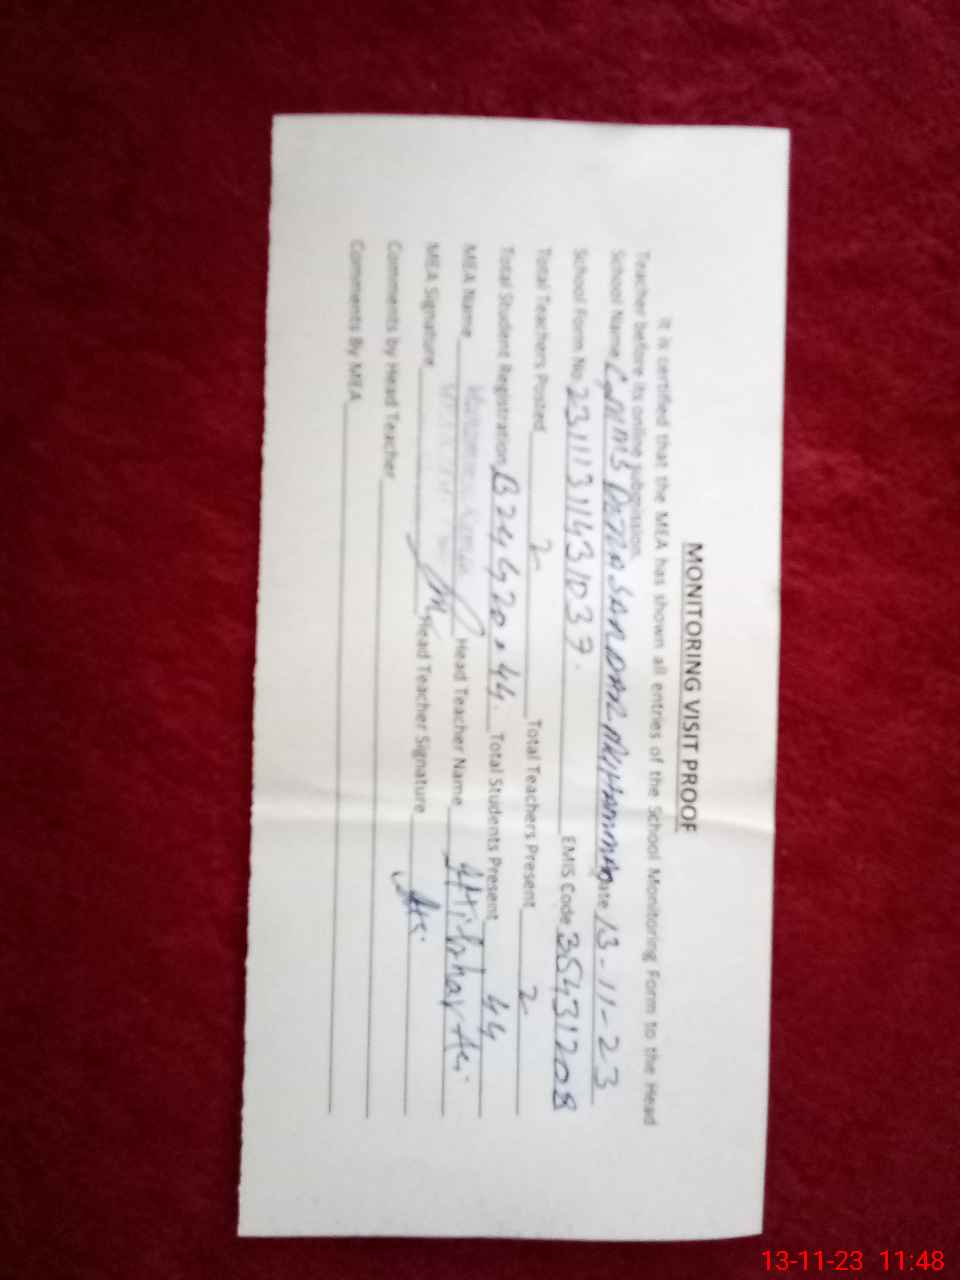 MONITORING VISIT PROOF
It is certified that the MEA has shown all entries of the School Monitoring Form to the Head
Teacher before its online submission.
School Name Date 13-11-23
School Form No 23111311431039. EMIS Code 35431208
Total Teachers Posted 2 Total Teachers Present 2
Total Student Registration B24 G20 = 44. Total Students Present 44
MEA Name Head Teacher Name
MEA Signature Head Teacher Signature
Comments by Head Teacher
Comments By MEA
13-11-23 11:48